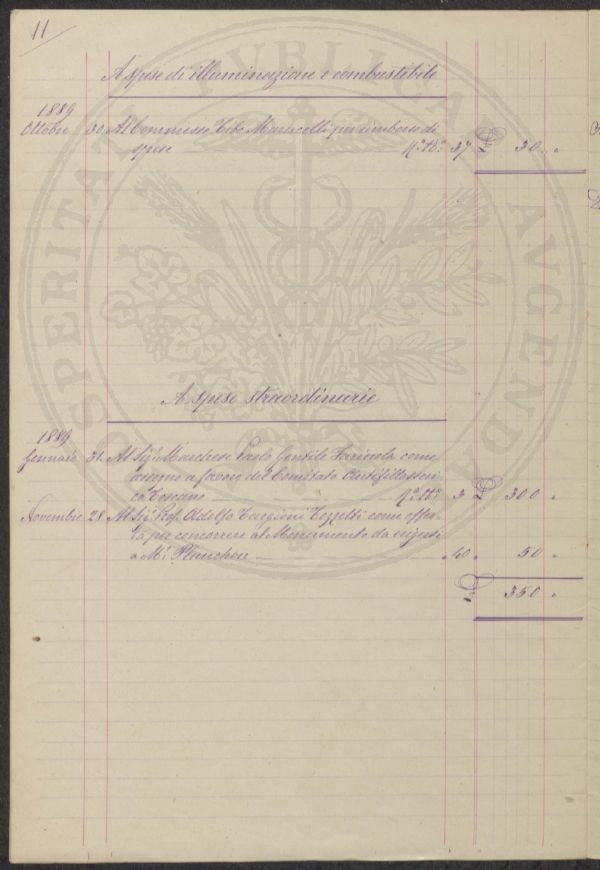 11
A spese di illuminazione e combustibile
1889
Ottobre 30 Al Commesso Tito Marucelli per rimborso di
spese N.° At.° 37 £ 30 "
A spese straordinarie
1889
Gennaio 31 Al Sig.r Marchese Paolo Gentile Farinola come
assegno a favore del Comitato Antifillosseri-
co Toscano N.° At.° 3 £ 300 "
Novembre 28 Al Sig.r Prof. Adolfo Targioni Tozzetti come offer-
ta per concorrere al Monumento da erigersi
a M.r Planchon 40 " 50 "
£ 350 "
PROSPERITATI PVBLICAE AVGENDAE